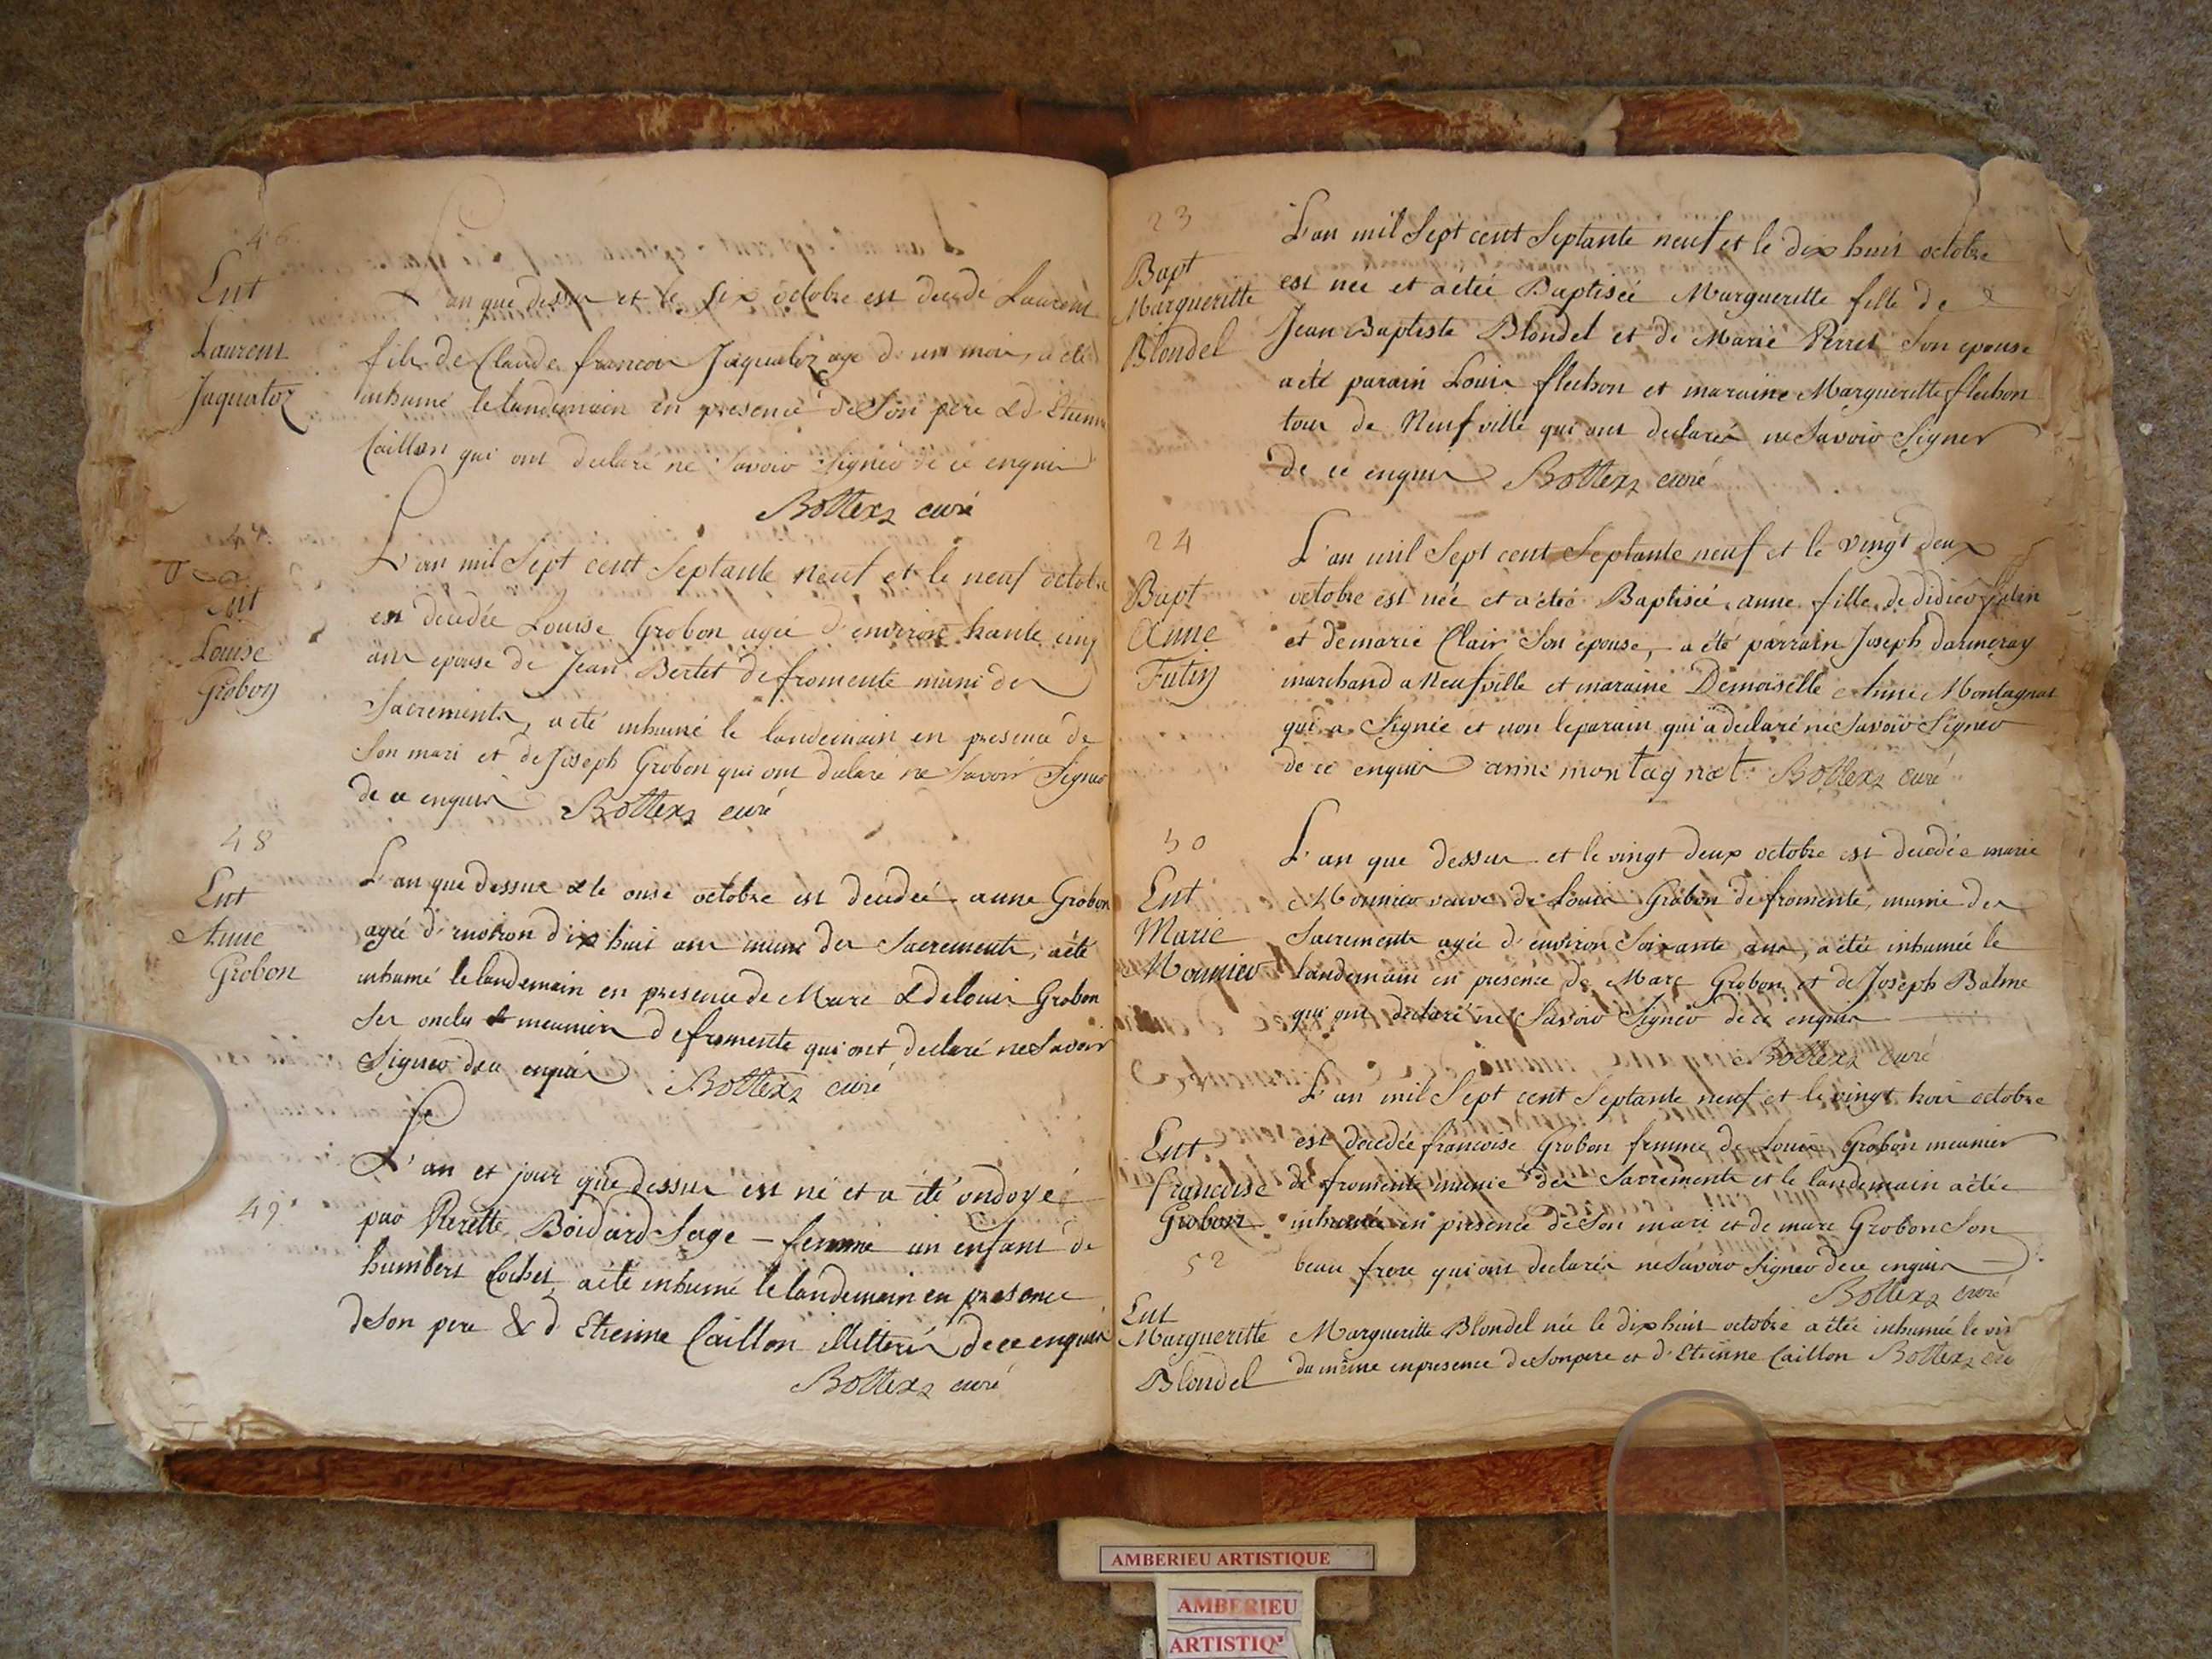 46
Ent
Laurent
Jaquatoz
L'an que dessus et le six octobre est decedé Laurent
fils de Claude francois Jaquatoz agé d'un mois, a eté
inhumé le landemain en presence de Son pere & d'Etienne
Caillon qui ont declaré ne Savoir Signer de ce enquis
Bottex curé
47
Ent
Louise
Grobon
L'an mil Sept cent Septante neuf et le neuf octobre
est decedée Louise Grobon agée d'environ trante cinq
ans epouse de Jean Bertet de fromente muni des
Sacrements, a eté inhumé le landemain en presence de
Son mari et de Joseph Grobon qui ont declaré ne Savoir Signer
de ce enquis Bottex curé
48
Ent
Anne
Grobon
L'an que dessus & le onse octobre est decedeé anne Grobon
agée d'environ dix huit ans munie des Sacrements, a eté
inhumé le landemain en presence de Marc & de louis Grobon
Ses oncles meuniers de fromente qui ont declaré ne Savoir
Signer de ce enquis Bottex curé
49
L'an et jour que dessus est né et a été ondoyé
par Pierette Boidard Sage - femme un enfant de
humbert Cochet, a eté inhumé le landemain en presence
de Son pere & d'Etienne Caillon illitterés de ce enquis
Bottex curé
23
Bapt
Margueritte
Blondel
L'an mil Sept cent Septante neuf et le dix huit octobre
est née et a étée Baptiseé Margueritte fille de
Jean Baptiste Blondel et de Marie Perret Son epouse
a été parain Louis flechon et maraine Margueritte flechon
tous de Neufville qui ont declarés ne Savoir Signer
de ce enquis Bottex curé
24
Bapt
Anne
Futin
L'an mil Sept cent Septante neuf et le vingt deux
octobre est née et a étée Baptiseé anne fille de didier futin
et de marie Clair Son epouse, a été parrain Joseph darmeray
marchand a Neufville et maraine Demoiselle Anne Montagnat
qui a Signée et non le parain qui a declaré ne Savoir Signer
de ce enquis anne montagnat Bottex curé
50
Ent
Marie
Mounier
L'an que dessus et le vingt deux octobre est decedée marie
Mounier veuve de Louis Grobon de fromente, munie des
Sacrements agée d'environ Soixante ans, a étée inhumée le
landemain en presence de Marc Grobon et de Joseph Balme
qui ont declaré ne Savoir Signer de ce enquis
Bottex curé
Ent
francoise
Grobon
L'an mil Sept cent Septante neuf et le vingt trois octobre
est decedée francoise Grobon femme de Louis Grobon meunier
de fromente munie des Sacrements et le landemain a étée
inhumée en presence de Son mari et de marc Grobon Son
beau frere qui ont declarés ne Savoir Signer de ce enquis
Bottex curé
52
Ent
Margueritte
Blondel
Margueritte Blondel née le dix huit octobre a étée inhumée le
du même en presence de Son pere et d'Etienne Caillon Bottex
AMBERIEU ARTISTIQUE
AMBERIEU
ARTISTIQ